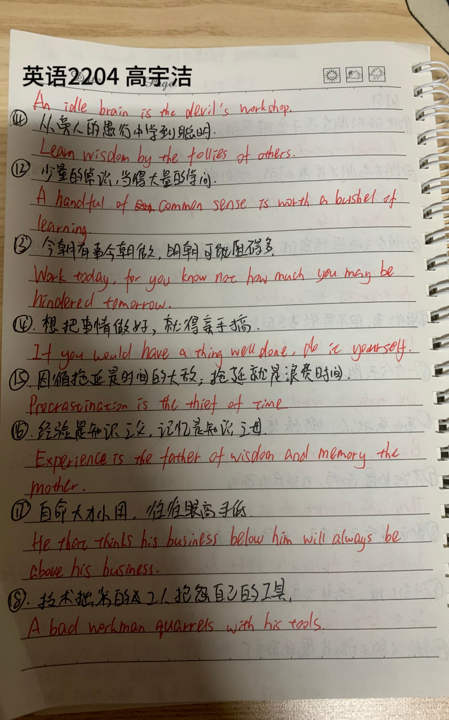 英语2204 高宇洁
An idle brain is the devil's workshop.
⑪ 从愚人的愚行中学到聪明.
Learn wisdom by the follies of others.
⑫ 少量的常识,当得大量的学问.
A handful of common sense is worth a bushel of
learning.
⑬ 今朝有事今朝做, 明朝可能阻碍多.
Work today, for you know not how much you may be
hindered tomorrow.
⑭. 想把事情做好, 就得亲手搞.
If you would have a thing well done, do it yourself.
⑮ 因循拖延是时间的大敌; 拖延就是浪费时间.
Procrastination is the thief of time
⑯. 经验是知识之父, 记忆是知识之母.
Experience is the father of wisdom and memory the
mother.
⑰ 自命大才小用, 往往眼高手低
He that thinks his business below him will always be
above his business.
⑱. 技术拙劣的工人抱怨自己的工具.
A bad workman quarrels with his tools.